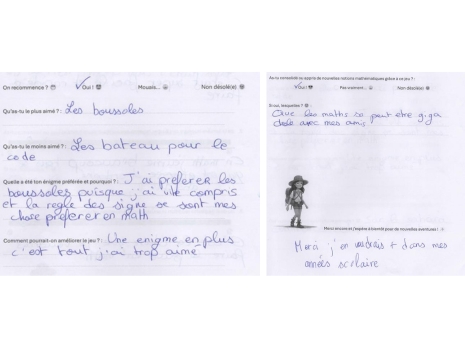 On recommence ? Oui ! Mouais... Non désolé(e)
Qu'as-tu le plus aimé ? : Les boussoles
Qu'as-tu le moins aimé ? : Les bateau pour le
code
Quelle a été ton énigme préférée et pourquoi ? : J'ai préférer les
boussoles puisque j'ai vite compris
et la règle des signe se sont mes
chose préférer en math
Comment pourrait-on améliorer le jeu ? : Une enigme en plus
c'est tout j'ai trop aimé
As-tu consolidé ou appris de nouvelles notions mathématiques grâce à ce jeu ? :
Oui ! Pas vraiment... Non désolé(e)
Si oui, lesquelles ? :
Que les maths ca peut être giga
drole avec mes amis
Merci encore et j'espère à bientôt pour de nouvelles aventures !
Merci j'en voudrais + dans mes
années scolaire